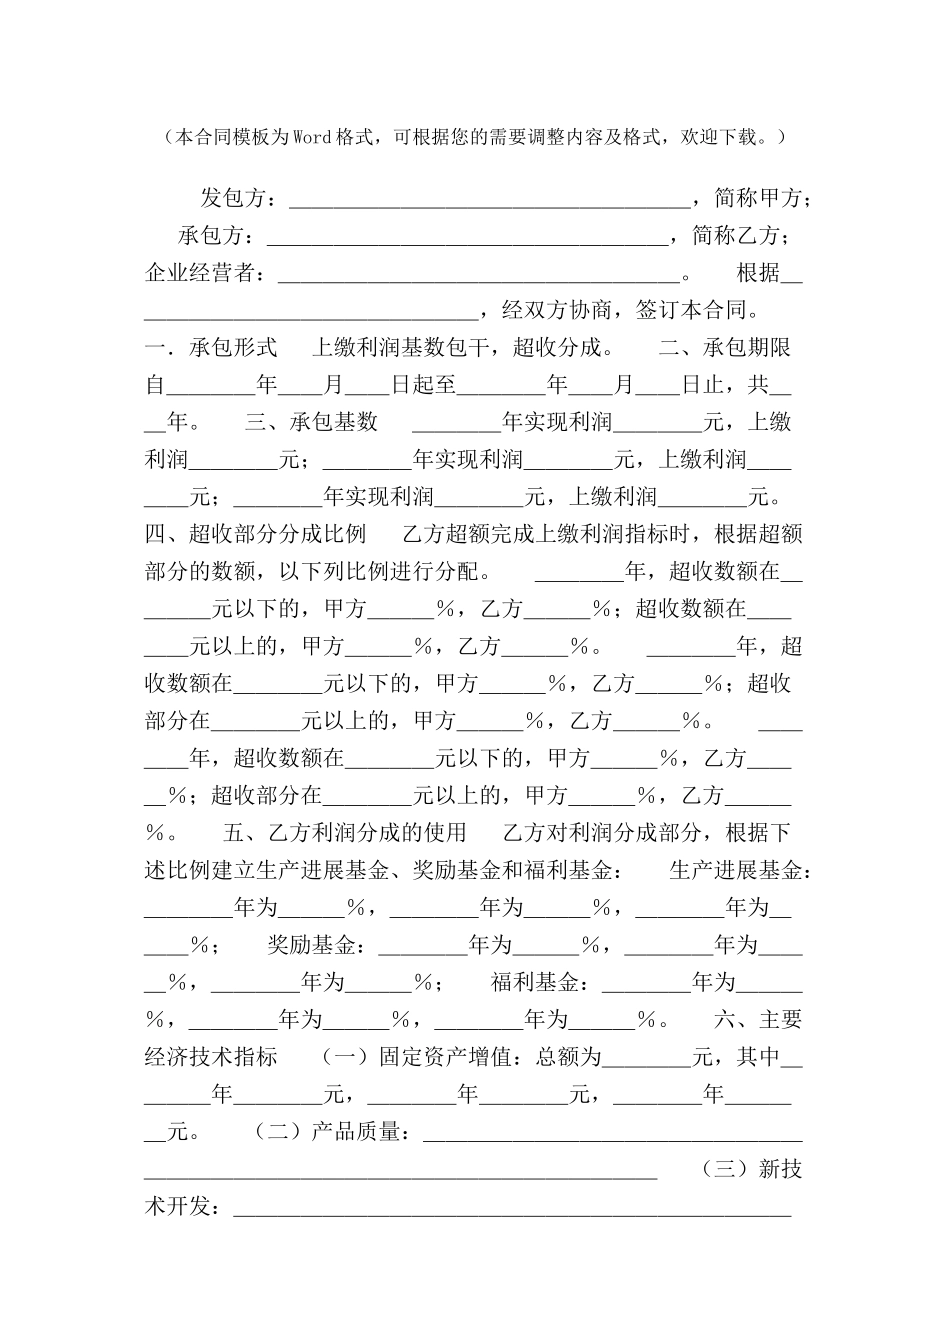 （本合同模板为 Word 格式，可根据您的需要调整内容及格式，欢迎下载。）
发包方：____________________________________，简称甲方；
承包方：____________________________________，简称乙方；
企业经营者：____________________________________。 根据__
______________________________，经双方协商，签订本合同。
一．承包形式 上缴利润基数包干，超收分成。 二、承包期限
自________年____月____日起至________年____月____日止，共__
__年。 三、承包基数 ________年实现利润________元，上缴
利润________元；________年实现利润________元，上缴利润____
____元；________年实现利润________元，上缴利润________元。
四、超收部分分成比例 乙方超额完成上缴利润指标时，根据超额
部分的数额，以下列比例进行分配。 ________年，超收数额在__
______元以下的，甲方______％，乙方______％；超收数额在____
____元以上的，甲方______％，乙方______％。 ________年，超
收数额在________元以下的，甲方______％，乙方______％；超收
部分在________元以上的，甲方______％，乙方______％。 ____
____年，超收数额在________元以下的，甲方______％，乙方____
__％；超收部分在________元以上的，甲方______％，乙方______
％。 五、乙方利润分成的使用 乙方对利润分成部分，根据下
述比例建立生产进展基金、奖励基金和福利基金： 生产进展基金：
________年为______％，________年为______％，________年为__
____％； 奖励基金：________年为______％，________年为____
__％，________年为______％； 福利基金：________年为______
％，________年为______％，________年为______％。 六、主要
经济技术指标 （一）固定资产增值：总额为________元，其中__
______年________元，________年________元，________年______
__元。 （二）产品质量：__________________________________
______________________________________________ （三）新技
术开发：__________________________________________________